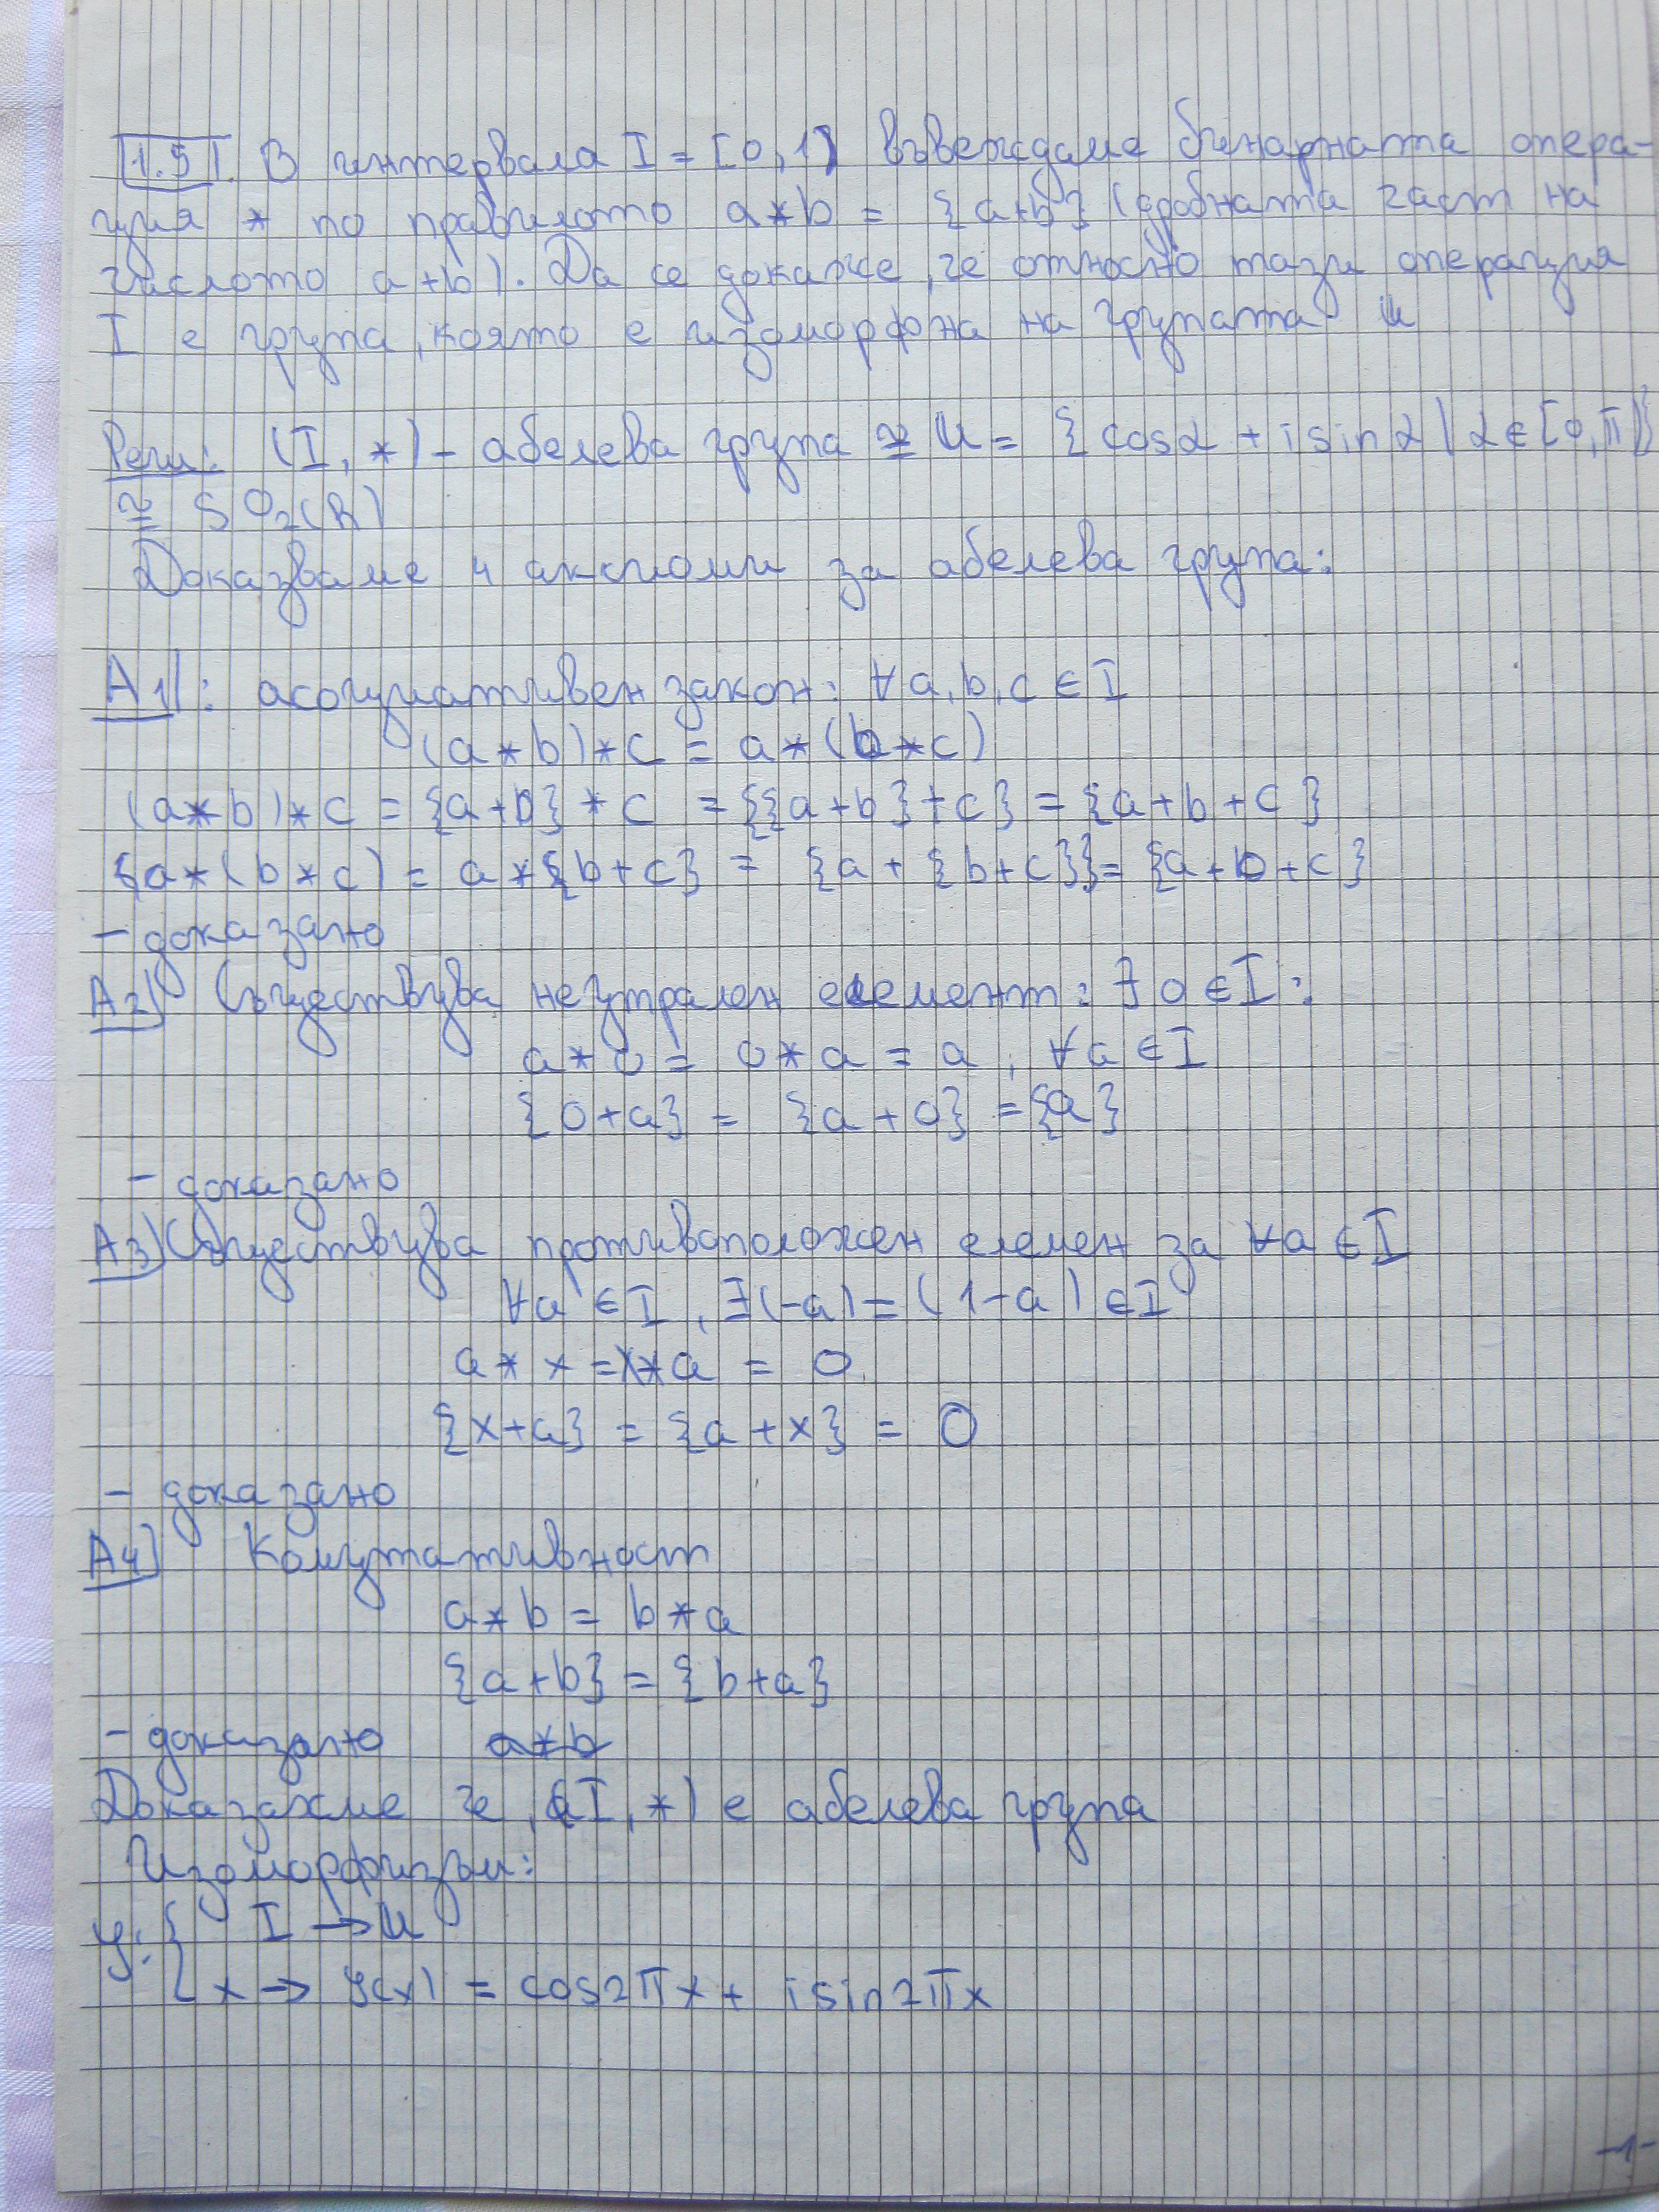 1.5. В интервала I = [0,1) въвеждаме бинарната опера-
ция * по правилото a*b = {a+b} (дробната част на
числото a+b). Да се докаже, че относно тази операция
I е група, която е изоморфна на групата U
Реш: (I, *) - абелева група ≅ U = {cosα + i sinα | α ∈ [0, π)}
≅ SO₂(R)
Доказваме 4 аксиоми за абелева група:
A1): асоциативен закон: ∀a,b,c ∈ I
(a*b)*c = a*(b*c)
(a*b)*c = {a+b}*c = {{a+b}+c} = {a+b+c}
a*(b*c) = a*{b+c} = {a+{b+c}} = {a+b+c}
- доказано
A2) Съществува неутрален елемент: ∃ 0 ∈ I:
a*0 = 0*a = a, ∀a ∈ I
{0+a} = {a+0} = {a}
- доказано
A3) Съществува противоположен елемен за ∀a ∈ I
∀a ∈ I, ∃(-a) = (1-a) ∈ I
a*x = x*a = 0
{x+a} = {a+x} = 0
- доказано
A4) Комутативност
a*b = b*a
{a+b} = {b+a}
- доказано a*b
Доказахме че, (I,*) е абелева група
Изоморфизъм:
φ: { I → U
x → φ(x) = cos2πx + i sin2πx
-1-